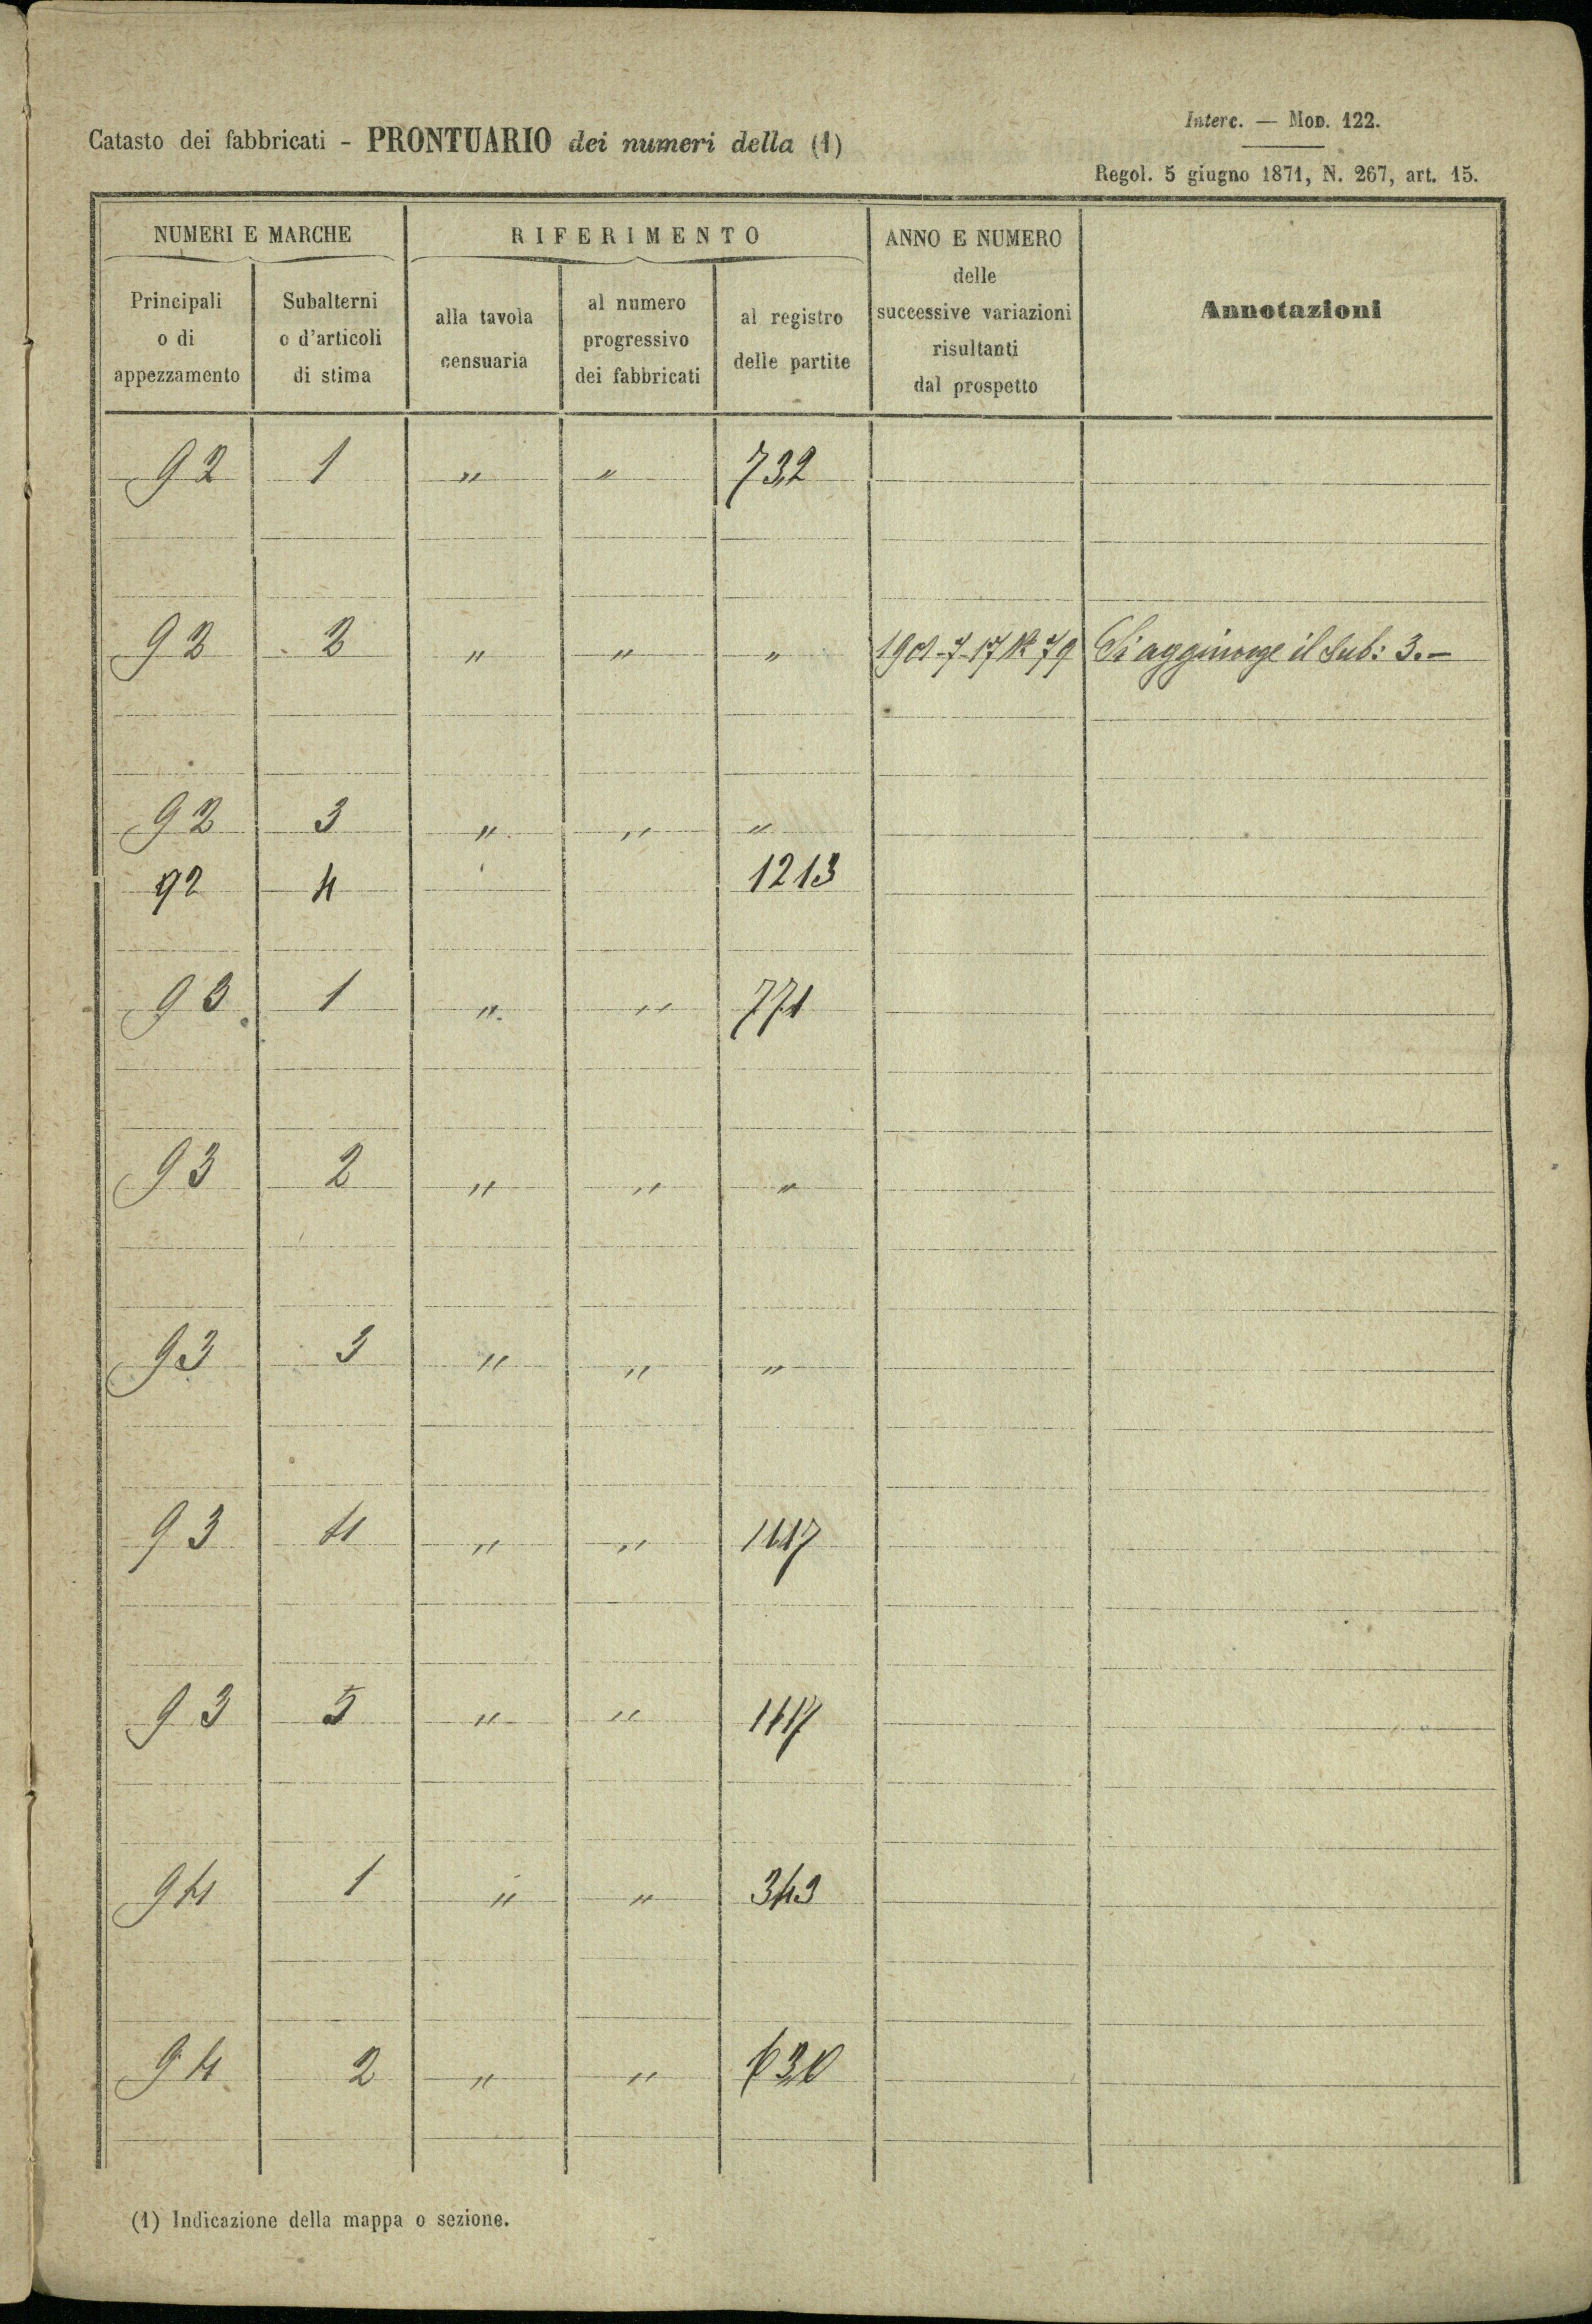 Interc. — Mod. 122.
Catasto dei fabbricati - PRONTUARIO dei numeri della (1)
Regol. 5 giugno 1871, N. 267, art. 15.
NUMERI E MARCHE RIFERIMENTO ANNO E NUMERO delle successive variazioni risultanti dal prospetto Annotazioni
Principali o di appezzamento Subalterni o d'articoli di stima alla tavola censuaria al numero progressivo dei fabbricati al registro delle partite
92 1 " " 732
92 2 " " " 1901-7-17 79 Si aggiunge il Sub: 3.-
92 3 " " "
92 4 1213
93 1 " " 771
93 2 " " "
93 3 " " "
93 4 " " 1117
93 5 " " 1117
94 1 " " 343
94 2 " " 630
(1) Indicazione della mappa o sezione.